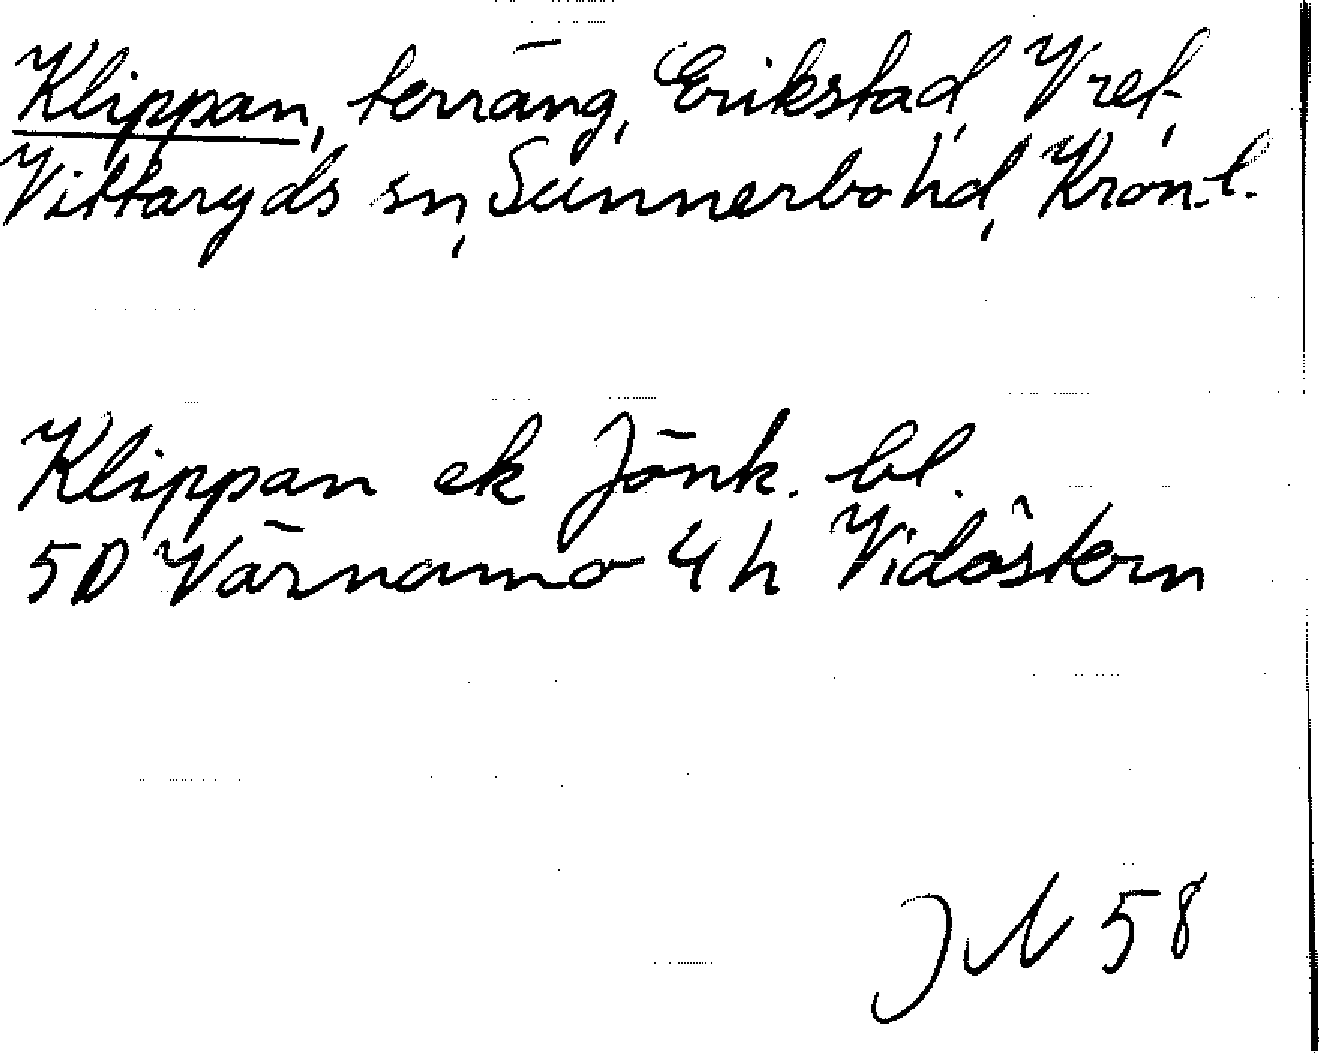 Klippan, terräng, Erikstad, Vret,
Vittaryds sn, Sunnerbo hd, Kron.l.
Klippan ek Jönk. bl.
5D Värnamo 4h Vidöstern
58